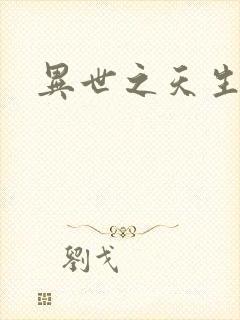 異世之天生
劉戈